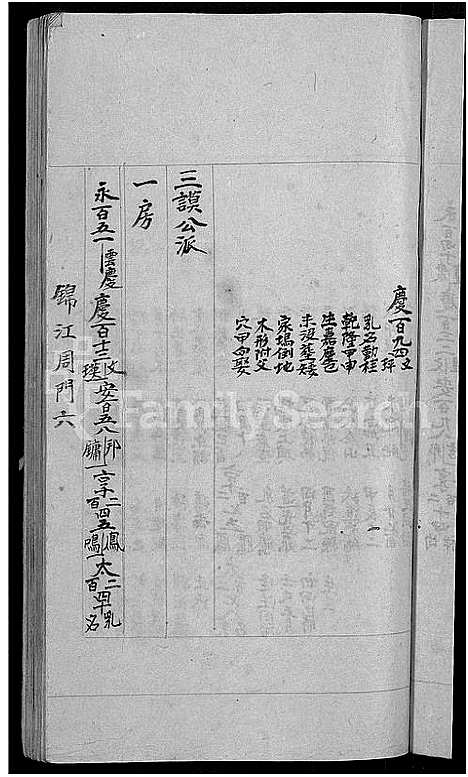 慶一百九四文
琈
乳名勤程
乾隆甲申
生嘉慶己
未没塟矮
家塢倒地
木形附父
穴甲向娶
三謨公派
一房
永百五一雲慶慶百十三攻瑛安百五八邦鏞享二百四五鳳鳴太二百四十乳名
錦江周門六
FamilySearch